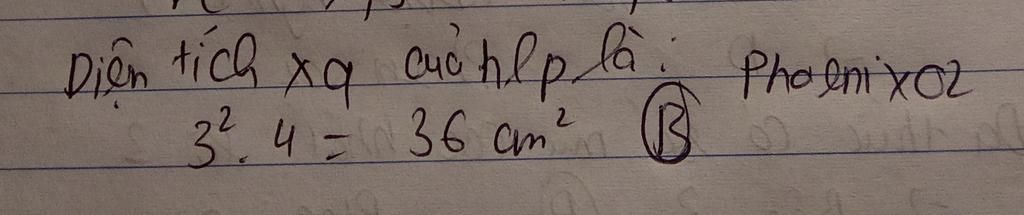 Diện tích xq của hlp là: PhoenixO2
3². 4 = 36 cm² B